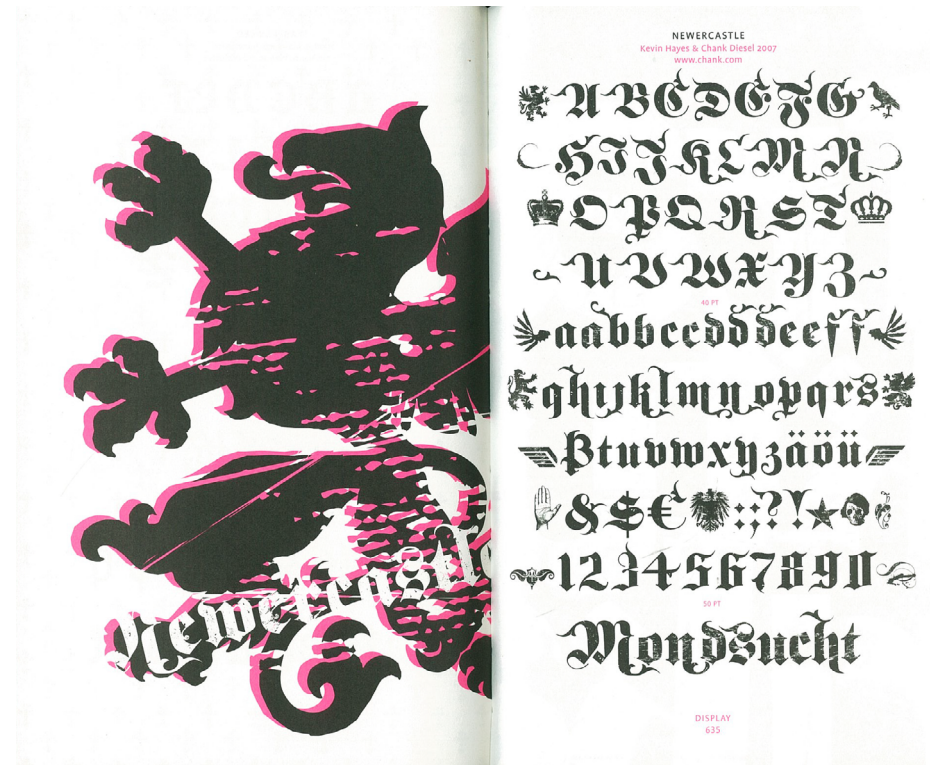 Newercastle
NEWERCASTLE
Kevin Hayes & Chank Diesel 2007
www.chank.com
ABCDEFG
HIJKLMN
OPQRST
UVWXYZ
40 PT
aabbccdddeeff
ghijklmnopqrs
ßtuvwxyzäöü
&$€:;?!
1234567890
50 PT
Mondsucht
DISPLAY
635